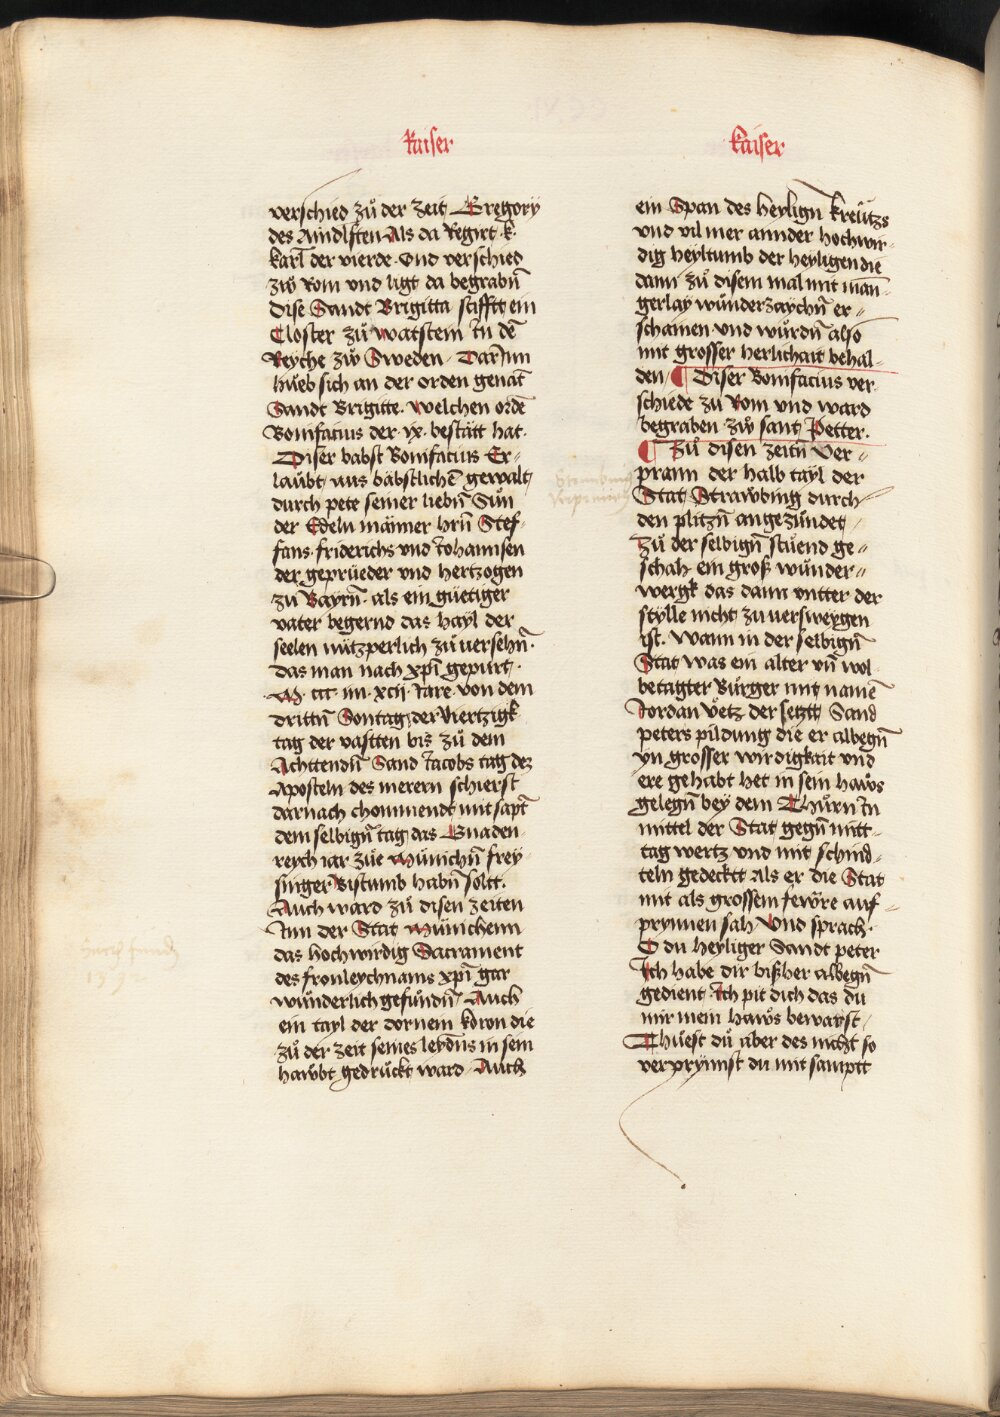 Kaiser
verschied zů der zeit Gregory
des Aindlften Als da Regirt k.
karl der vierde. Vnd verschied
zw Rom vnd ligt da begrabn̄
dise Sandt Brigitta stifftt ein
Closter zů watstein In dē
Reyche zw Sweden. Darinn
hueb sich an der orden genāt
Sandt Brigitte. welchen ordē
Bonifacius der ix. bestätt hat.
Diser babst Bonifacius Er⸗
laubt aus bäbstlichē gewalt
durch pete seiner liebn̄ Sün
der Edeln männer hrn̄ Stef⸗
fans. friderichs vnd Johannsen
der geprüeder vnd hertzogen
zu Bayrn̄. als ein güetiger
vater begernd das hayl der
seelen nützperlich zůuersehn̄.
das man nach xp̄i gepurt.
M. ccc. iin. xcij. Jare von dem
drittn̄ Sontag der viertzigk
tag der vastten bis zů dem
Achttendn̄ Sand Jacobs tag dez
Aposteln des merern schierst
darnach chommendt mitsapt̄
dem selbign̄ tag das Gnaden⸗
reych iar zue Münichn̄ frey⸗
singer Bistumb habn̄ soltt.
Auch ward zů disen zeiten
Inn der Stat Münichenn
das hochwirdig Sacrament
des fronleychnams xp̄i gar
wunderlich gefundn̄. Auch
ein tayl der dornein koron die
zů der zeit seines leydn̄s in sein
hawbt gedrückt ward. Auch
Kaiser
ein Span des heylign̄ kreutzs
vnd vil mer annder hochwir⸗
dig heyltumb der heyligen die
dann zů disem mal mit man⸗
gerlay wunderzaychn̄ er⸗
schainen vnd wurdn̄ also
mit grosser herlichait behal⸗
den. ¶ Diser Bonifacius ver
schiede zu Rom vnd ward
begraben zw sant Petter.
¶ Zů disen zeitn̄ Ver⸗
prann der halb tayl der
Stat Strawbing durch
den plitzn̄ angezundet
Zů der selbign̄ stuend ge⸗
schah ein groß wunder⸗
wergk das dann vntter der
stylle nicht zu uersweygen
ist. wann in der selbign̄
Stat was ein alter vn̄ wol
betagter Burger mit namē
Jordan vetz der setzt Sand
peters pildung die er albegn̄
yn grosser wirdigkait vnd
ere gehabt het in sein haws
gelegn̄ bey dem Thurn In
mittel der Stat gegn̄ mitt⸗
tag wertz vnd mit schind⸗
teln gedecktt als er die Stat
mit als grossem fewre auf⸗
prynnen sah Vnd sprach.
O du heyliger Sandt peter
Ich habe dir bißher albegn̄
gedient. Ich pit dich das du
mir mein haws bewarst.
Thuest du aber des nicht so
verprynnst du mit samptt